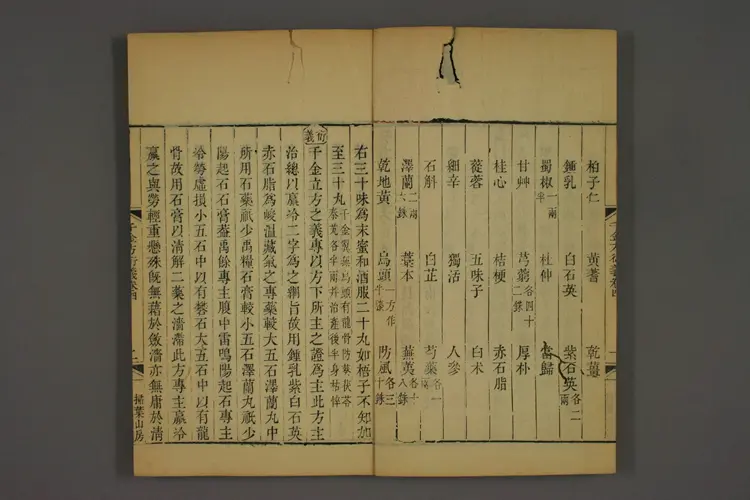 柏子仁 黃耆 乾薑
鍾乳 白石英 紫石英各二兩
蜀椒一兩半 杜仲 當歸
甘艸 芎藭各四十二銖 厚朴
桂心 桔梗 赤石脂
蓯蓉 五味子 白术
細辛 獨活 人參
石斛 白芷 芍藥各一兩
澤蘭二兩六銖 藁本 蕪荑各十八銖
乾地黃 烏頭一方作牛膝 防風各三十銖
右三十味爲末蜜和酒服二十丸如梧子不知加
至三十丸千金翼無烏頭有龍骨防葵茯苓秦艽各半兩幷治產後半身枯悴
衍義
千金立方之義專以方下所主之證爲主此方主
治總以羸冷二字爲之綱旨故用鍾乳紫白石英
赤石脂爲峻溫藏氣之專藥較大五石澤蘭丸中
所用石藥祇少禹糧石膏較小五石澤蘭丸祇少
陽起石石膏葢禹餘專主腹中雷鳴陽起石專主
勞虛損小五石中以有礬石大五石中以有龍
骨故用石膏以清解二藥之濇滯此方專主羸冷
羸之與勞輕重懸殊旣無藉於斂濇亦無庸於清
千金方衍義卷四
二
掃葉山房